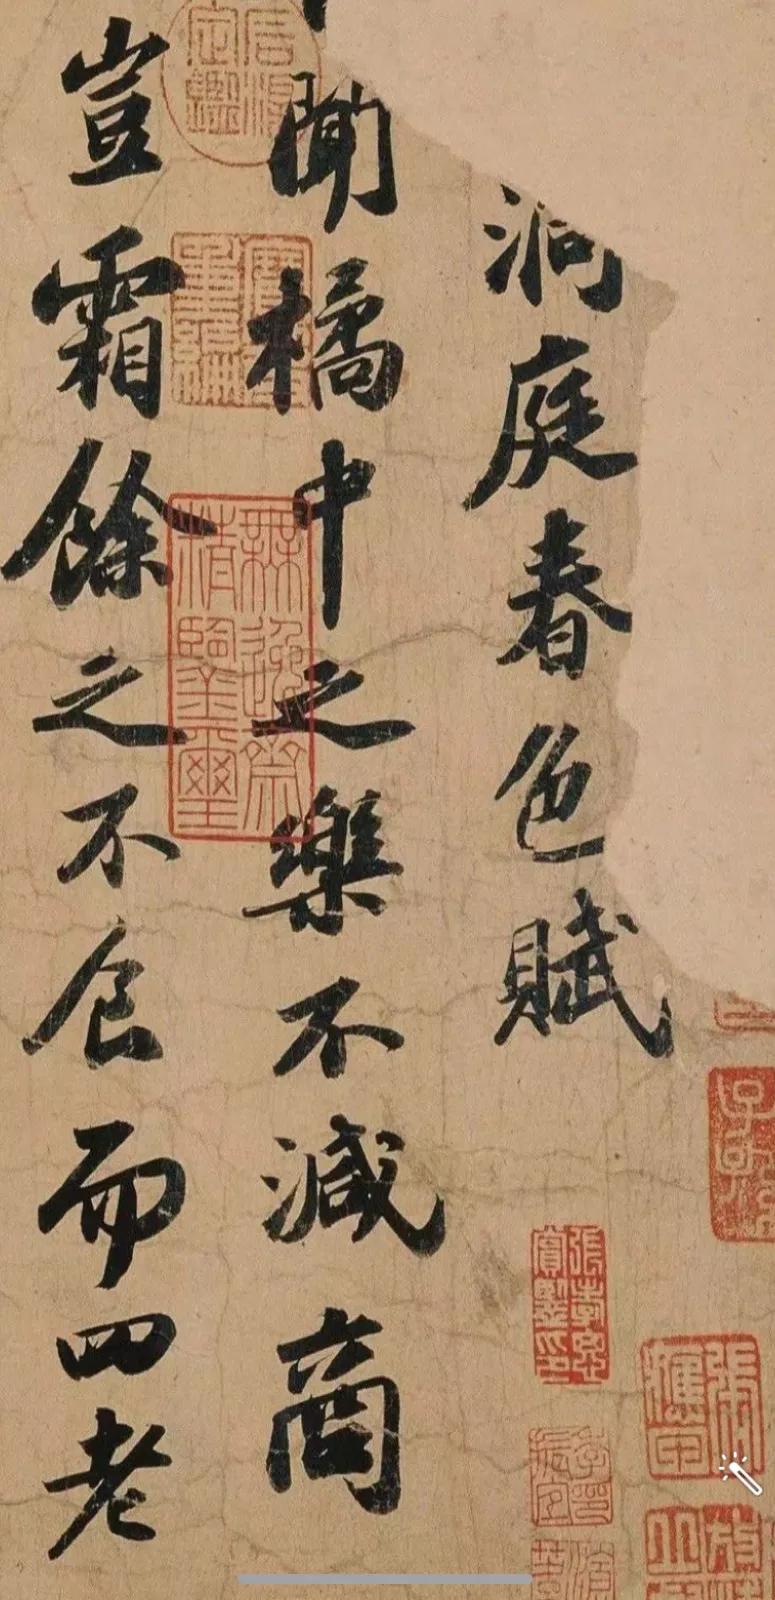 洞庭春色賦
聞橘中之樂不減商
豈霜餘之不食而四老